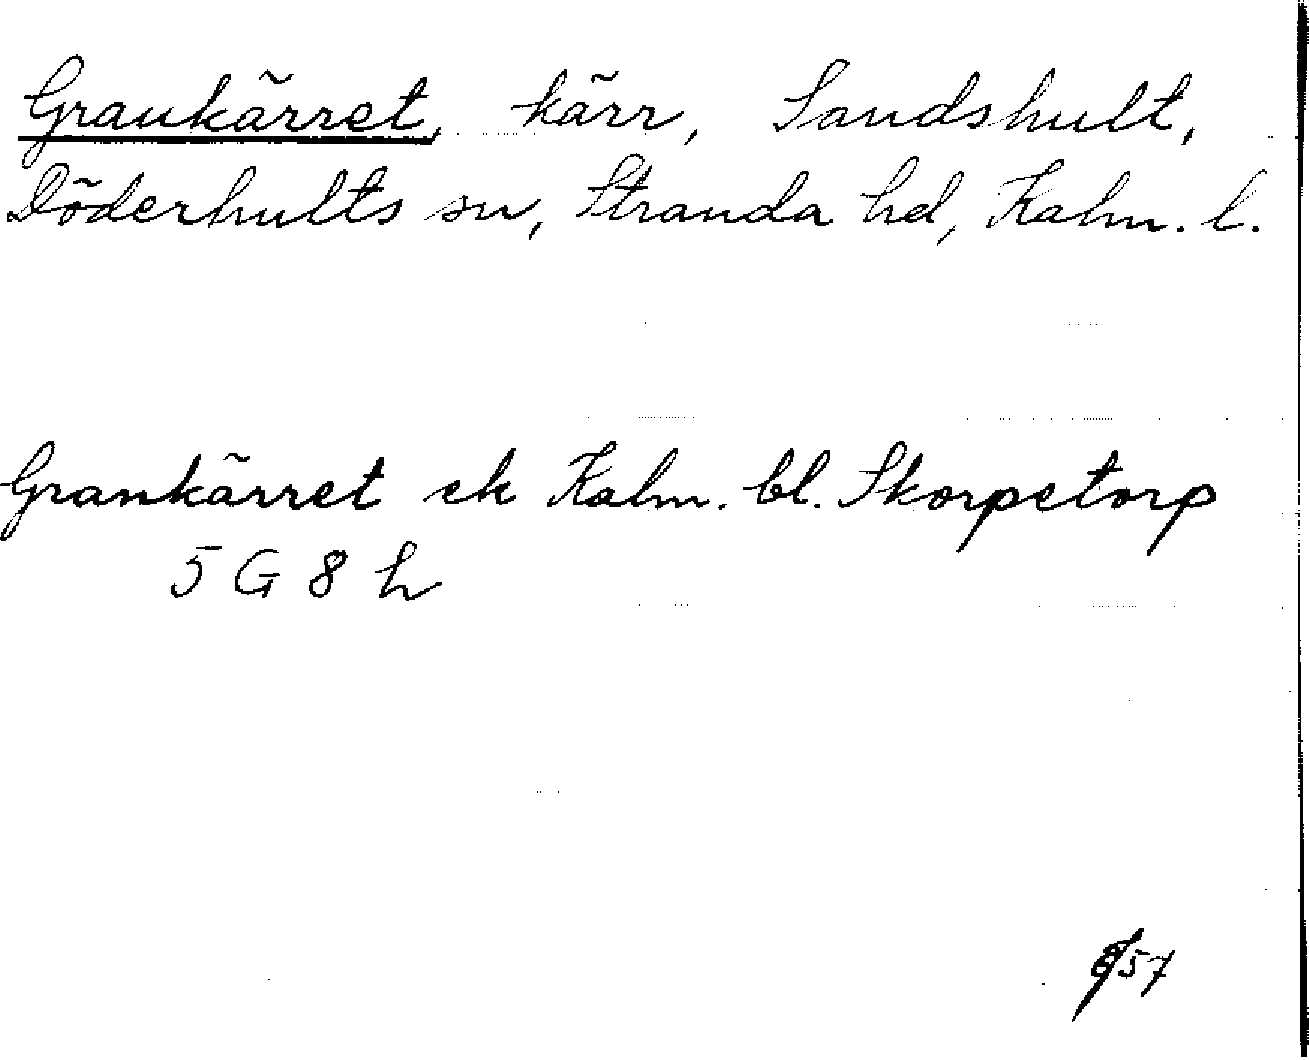 Grankärret, kärr, Sandshult,
Döderhults sn, Stranda hd, Kalm. l.
Grankärret ek Kalm. bl. Skorpetorp
5 G 8 h
57